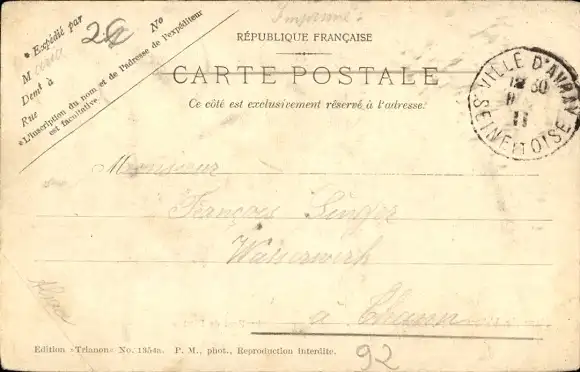 Imprimé
RÉPUBLIQUE FRANÇAISE
CARTE POSTALE
Ce côté est exclusivement réservé à l'adresse.
* Expédié par
M
Demt à
Rue
No
*L'inscription du nom et de l'adresse de l'expéditeur
est facultative.
VILLE D'AVRAY
30
11
SEINE ET OISE
Monsieur
François Singer
Wasserwerk
à Thann
Alsace
Edition «Trianon» No. 1354a. P. M., phot., Reproduction interdite.
92